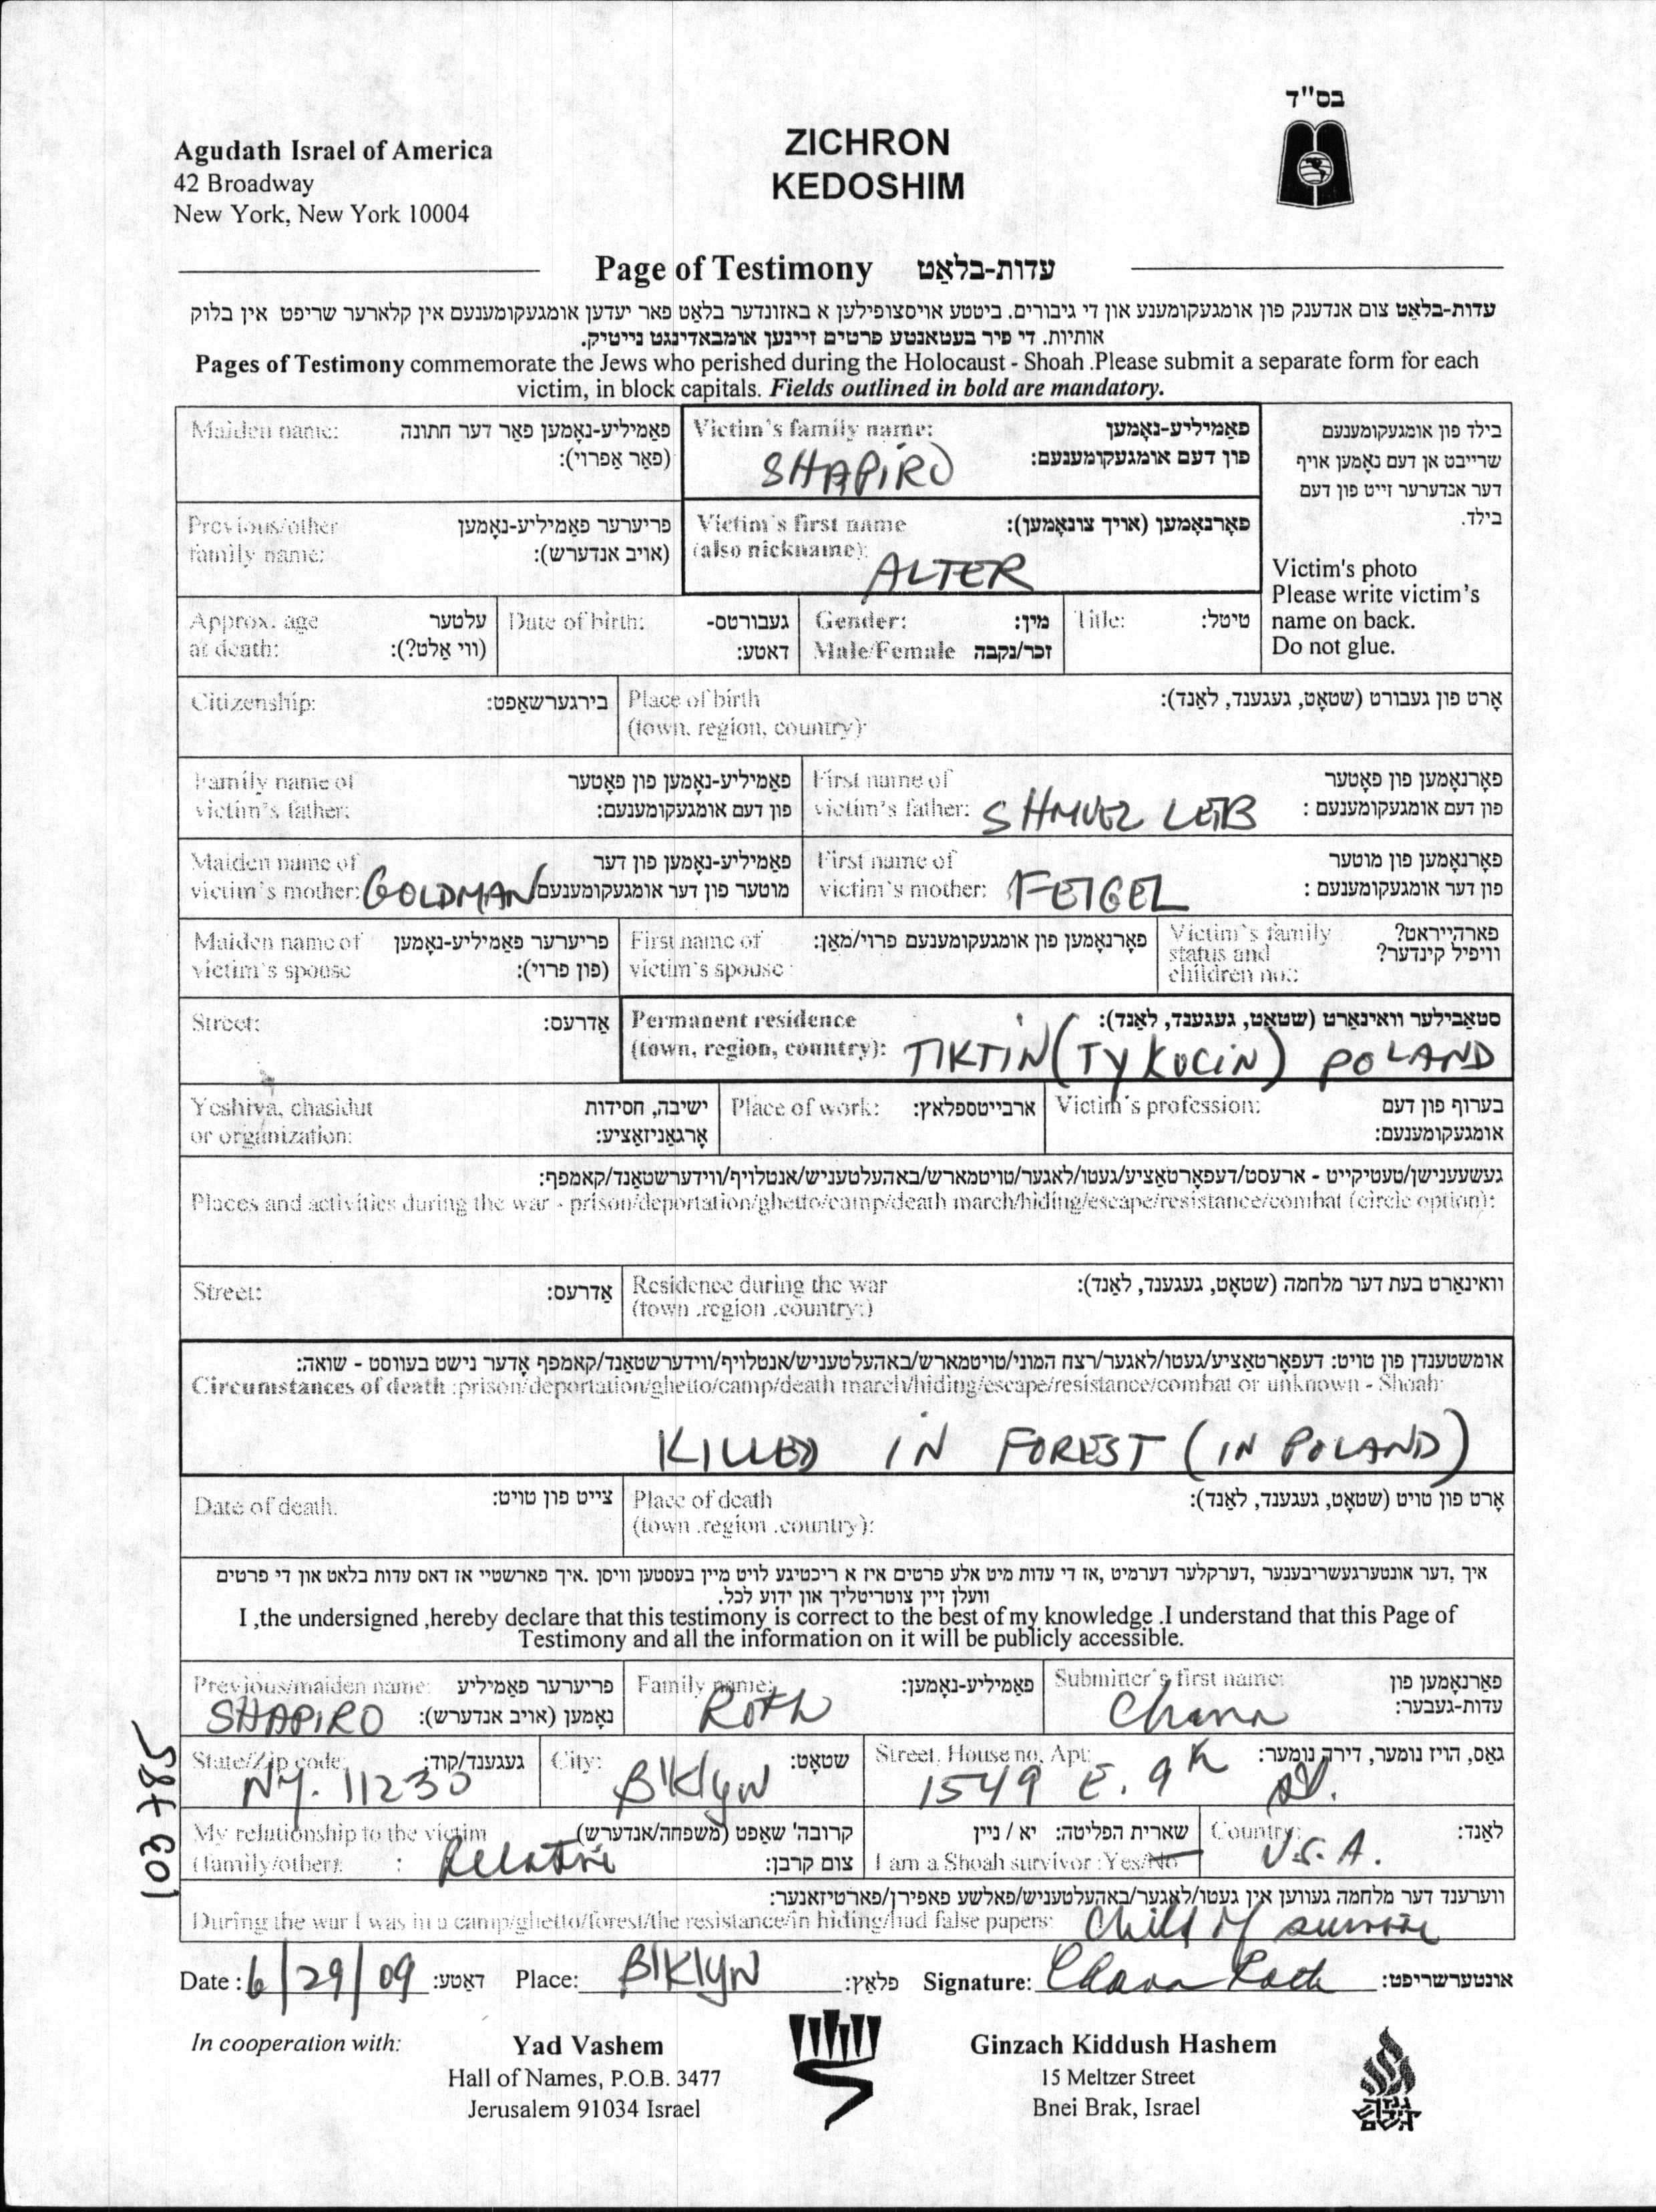 בס"ד
Agudath Israel of America
42 Broadway
New York, New York 10004
ZICHRON
KEDOSHIM
Page of Testimony עדות-בלאַט
עדות-בלאַט צום אנדענק פון אומגעקומענע און די גיבורים. ביטטע אויסצופילען א באזונדער בלאַט פאר יעדען אומגעקומענעם אין קלארער שריפט אין בלוק
אותיות. די פיר בעטאנטע פרטים זיינען אומבאדינגט נייטיק.
Pages of Testimony commemorate the Jews who perished during the Holocaust - Shoah .Please submit a separate form for each
victim, in block capitals. Fields outlined in bold are mandatory.
Maiden name: פאַמיליע-נאָמען פאַר דער חתונה
(פאַר אַפרוי):
Victim's family name: פאַמיליע-נאָמען
פון דעם אומגעקומענעם:
SHAPIRO
בילד פון אומגעקומענעם
שרייבט אן דעם נאָמען אויף
דער אנדערער זייט פון דעם
בילד.
Victim's photo
Please write victim's
name on back.
Do not glue.
Previous/other פריערער פאַמיליע-נאָמען
family name: (אויב אנדערש):
Victim's first name פאָרנאָמען (אויך צונאָמען):
(also nickname):
ALTER
Approx. age עלטער
at death: (ווי אַלט?):
Date of birth: געבורטס-
דאטע:
Gender: מין:
Male/Female זכר/נקבה
Title: טיטל:
Citizenship: בירגערשאַפט:
Place of birth אָרט פון געבורט (שטאָט, געגענד, לאַנד):
(town, region, country):
Family name of פאַמיליע-נאָמען פון פאָטער
victim's father: פון דעם אומגעקומענעם:
First name of פאָרנאָמען פון פאָטער
victim's father: SHMUEL LEIB פון דעם אומגעקומענעם :
Maiden name of פאַמיליע-נאָמען פון דער
victim's mother: GOLDMAN מוטער פון דער אומגעקומענעם
First name of פאָרנאָמען פון מוטער
victim's mother: FEIGEL פון דער אומגעקומענעם :
Maiden name of פריערער פאַמיליע-נאָמען
victim's spouse (פון פרוי):
First name of פאָרנאָמען פון אומגעקומענעם פרוי/מאַן:
victim's spouse :
Victim's family פארהייראט?
status and וויפיל קינדער?
children no.:
Street: אַדרעס:
Permanent residence סטאַבילער וואוינאָרט (שטאָט, געגענד, לאַנד):
(town, region, country): TIKTIN (TYKOCIN) POLAND
Yeshiva, chasidut ישיבה, חסידות
or organization: אָרגאַניזאַציע:
Place of work: ארבייטספלאץ:
Victim's profession: בערוף פון דעם
אומגעקומענעם:
געשעענישן/טעטיקייט - ארעסט/דעפאָרטאַציע/געטו/לאגער/טויטמארש/באהעלטעניש/אנטלויף/ווידערשטאַנד/קאמפף:
Places and activities during the war - prison/deportation/ghetto/camp/death march/hiding/escape/resistance/combat (circle option):
Street: אַדרעס:
Residence during the war וואוינאָרט בעת דער מלחמה (שטאָט, געגענד, לאַנד):
(town .region .country:)
אומשטענדן פון טויט: דעפאָרטאַציע/געטו/לאגער/רצח המוני/טויטמארש/באהעלטעניש/אנטלויף/ווידערשטאַנד/קאמפף אָדער נישט בעוואוסט - שואה:
Circumstances of death :prison/deportation/ghetto/camp/death march/hiding/escape/resistance/combat or unknown - Shoah:
KILLED IN FOREST (IN POLAND)
Date of death. צייט פון טויט:
Place of death אָרט פון טויט (שטאָט, געגענד, לאַנד):
(town .region .country):
איך ,דער אונטערגעשריבענער ,דערקלער דערמיט ,אז די עדות מיט אלע פרטים איז א ריכטיגע לויט מיין בעסטען וויסן .איך פארשטיי אז דאס עדות בלאט און די פרטים
וועלן זיין צוטריטליך און ידוע לכל.
I ,the undersigned ,hereby declare that this testimony is correct to the best of my knowledge .I understand that this Page of
Testimony and all the information on it will be publicly accessible.
Previous/maiden name: פריערער פאַמיליע
SHAPIRO נאָמען (אויב אנדערש):
Family name: פאַמיליע-נאָמען:
Roth
Submitter's first name: פאַרנאָמען פון
עדות-געבער:
Chana
State/Zip code: געגענד/קוד:
NY. 11230
City: שטאָט:
Bklyn
Street, House no, Apt: גאַס, הויז נומער, דירה נומער:
1549 E. 9th St.
My relationship to the victim קרובה' שאַפט (משפחה/אנדערש)
(family/other): : Relative צום קרבן:
שארית הפליטה: יא / ניין
I am a Shoah survivor :Yes/No
Country: לאַנד:
U.S.A.
ווערענד דער מלחמה געווען אין געטו/לאָגער/באַהעלטעניש/פאלשע פאפירן/פארטיזאנער:
During the war I was in a camp/ghetto/forest/the resistance/in hiding/had false papers: Child of survivor
Date : 6/29/09 דאַטע: Place: Bklyn פלאַץ: Signature: Chana Roth אונטערשריפט:
103 785
In cooperation with:
Yad Vashem
Hall of Names, P.O.B. 3477
Jerusalem 91034 Israel
Ginzach Kiddush Hashem
15 Meltzer Street
Bnei Brak, Israel
גנזך
קידוש
השם